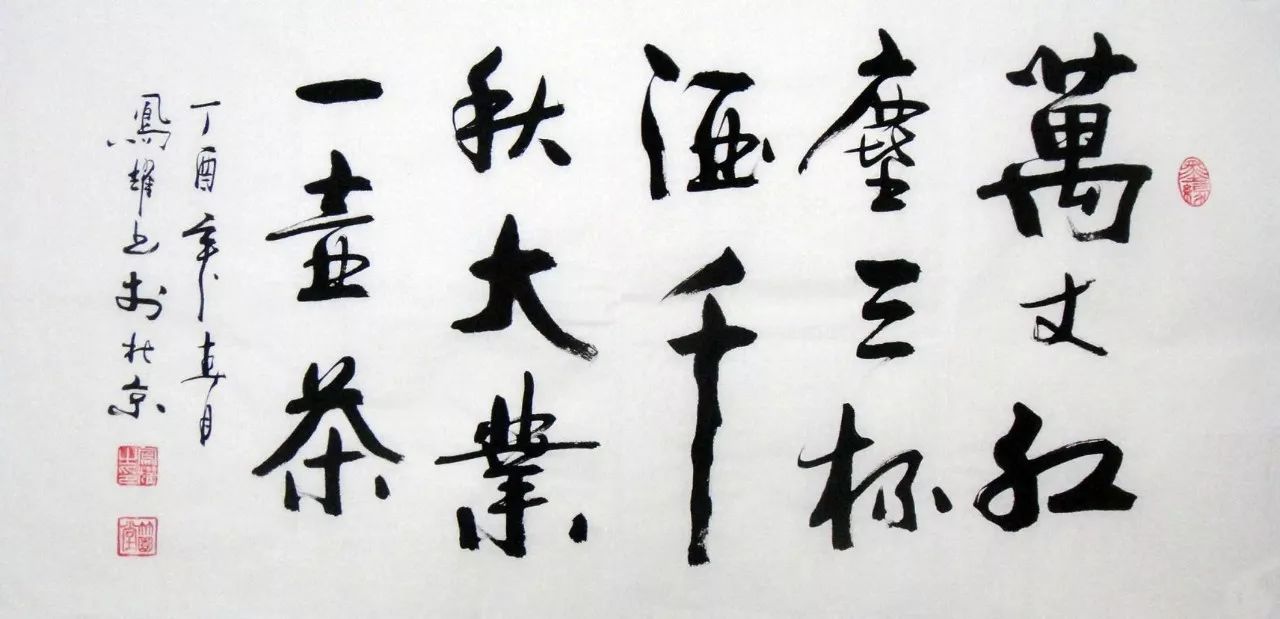 萬丈紅
塵三杯
酒千
秋大業
一壺茶
丁酉年春月
鳳耀书於北京